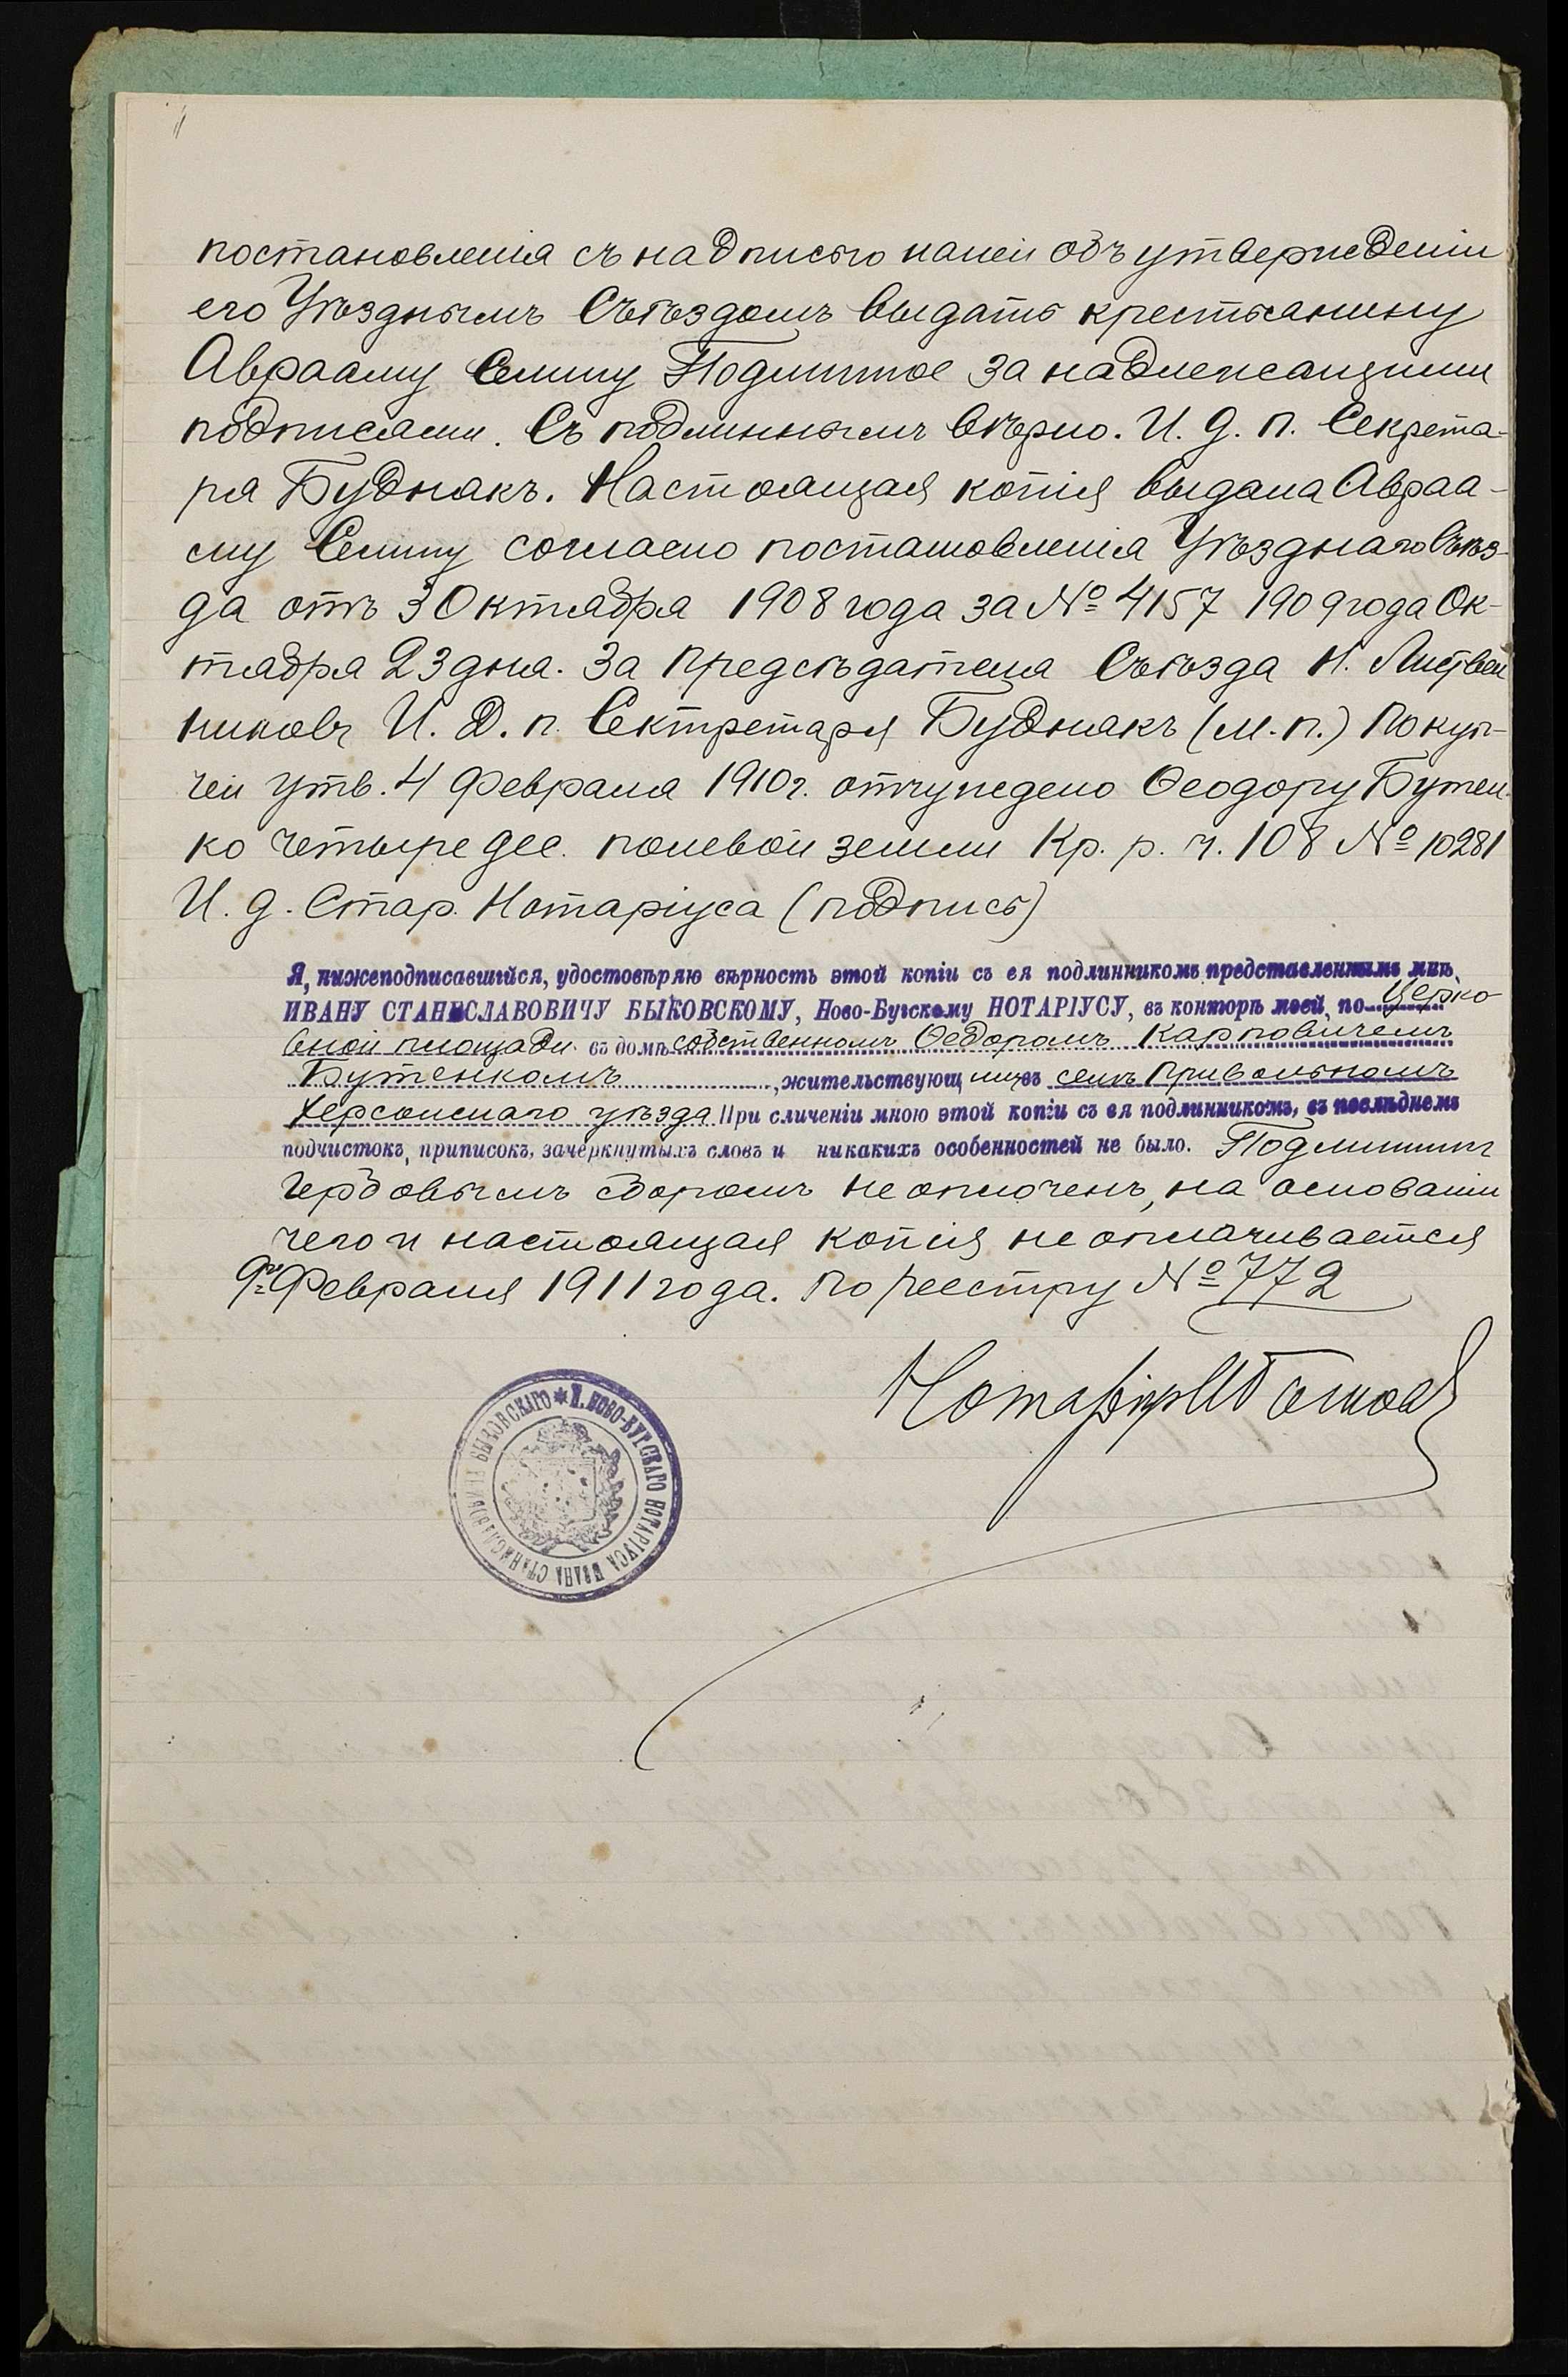 постановленія съ надписью на ней объ утвержденіи
его Уѣзднымъ Съѣздомъ выдать крестьянину
Аврааму Селину Подлинное за надлежащими
подписями. Съ подлиннымъ вѣрно. И. д. п. Секрета-
ря Буднякъ. Настоящая копія выдана Авраа-
му Селину согласно постановленія Уѣзднаго Съѣз-
да отъ 3 Октября 1908 года за № 4157 1909 года Ок-
тября 23 дня. За Предсѣдателя Съѣзда Н. Листвен
никовъ И. Д. п. Сектретаря Буднякъ (м. п.) По куп-
чей утв. 4 Февраля 1910 г. отчуждено Ѳеодору Бутен-
ко четыре дес. полевой земли Кр. р. ч. 108 № 10281
И. д. Стар. Нотаріуса (подпись)
Я, нижеподписавшійся, удостовѣряю вѣрность этой копіи съ ея подлинникомъ представленнымъ мнѣ,
ИВАНУ СТАНИСЛАВОВИЧУ БЫКОВСКОМУ, Ново-Бугскому НОТАРІУСУ, въ конторѣ моей, по Церко
вной площади въ домѣ собственномъ Ѳедоромъ Карповичемъ
Бутенкомъ, жительствующимъ въ селѣ Привольномъ
Херсонскаго уѣзда При сличеніи мною этой копіи съ ея подлинникомъ, въ послѣднемъ
подчистокъ, приписокъ, зачеркнутыхъ словъ и никакихъ особенностей не было. Подлинникъ
гербовымъ сборомъ не оплоченъ, на основаніи
чего и настоящая копія не оплачивается
9го Февраля 1911 года. По реестру № 772
Нотаріусъ
П. НОВО-БУГСКАГО НОТАРІУСА ИВАНА СТАНИСЛАВОВИЧА БЫКОВСКАГО